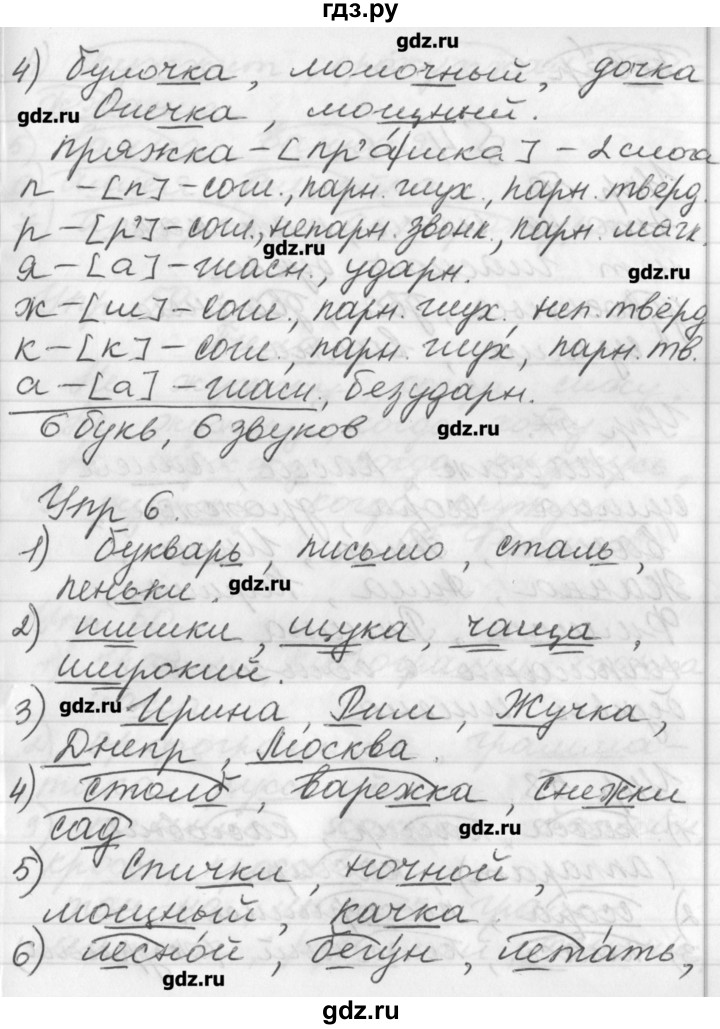 гдз.ру
gdz.ru
4) булочка, молочный, дочка
gdz.ru Опечка, мощный.
пряжка – [пр'ашка] – 2 слога
п – [п] – согл., парн. глух., парн. твёрд.
р – [р'] – согл., непарн. звонк., парн. мягк.
gdz.ru
я – [а] – гласн., ударн. gdz.ru
ж – [ш] – согл., парн. глух., неп. твёрд
к – [к] – согл., парн. глух, парн. тв.
а – [а] – гласн., безударн.
6 букв, 6 звуков gdz.ru
Упр 6.
1) букварь, письмо, сталь,
пеньки. gdz.ru
2) шишки, щука, чаща,
широкий.
gdz.ru
3) Ирина, Рим, Жучка,
Днепр, Москва.
4) столб, варежка, снежки
сад gdz.ru
5) Спички, ночной,
мощный, качка.
6) лесной, бегун, летать,
gdz.ru
gdz.ru